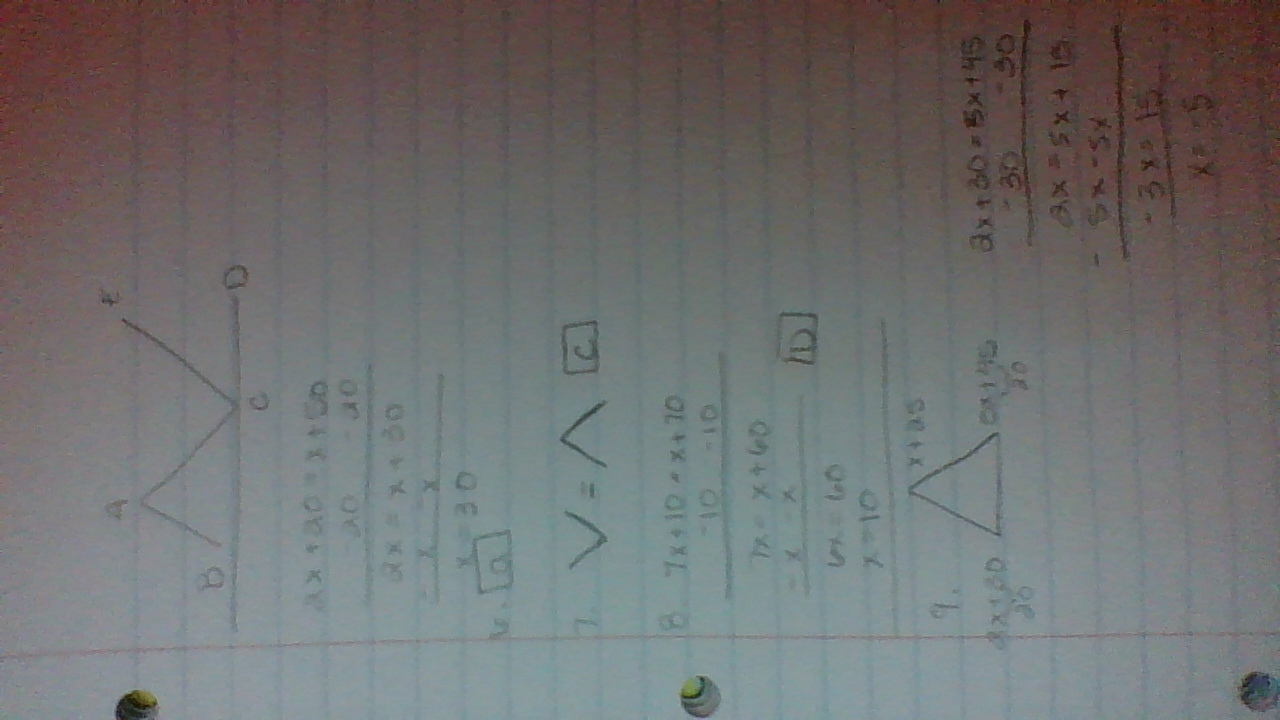 A
E
B
D
C
2x + 20 = x + 50
- 20 - 20
2x = x + 30
- x - x
x = 30
6. a
7. V = Λ C
8. 7x + 10 = x + 70
- 10 - 10
7x = x + 60
- x - x
6x = 60
D
x = 10
9.
x + 25
2x + 30
20
5x + 45
20
2x + 30 = 5x + 45
- 30 - 30
2x = 5x + 15
- 5x - 5x
- 3x = 15
x = - 5